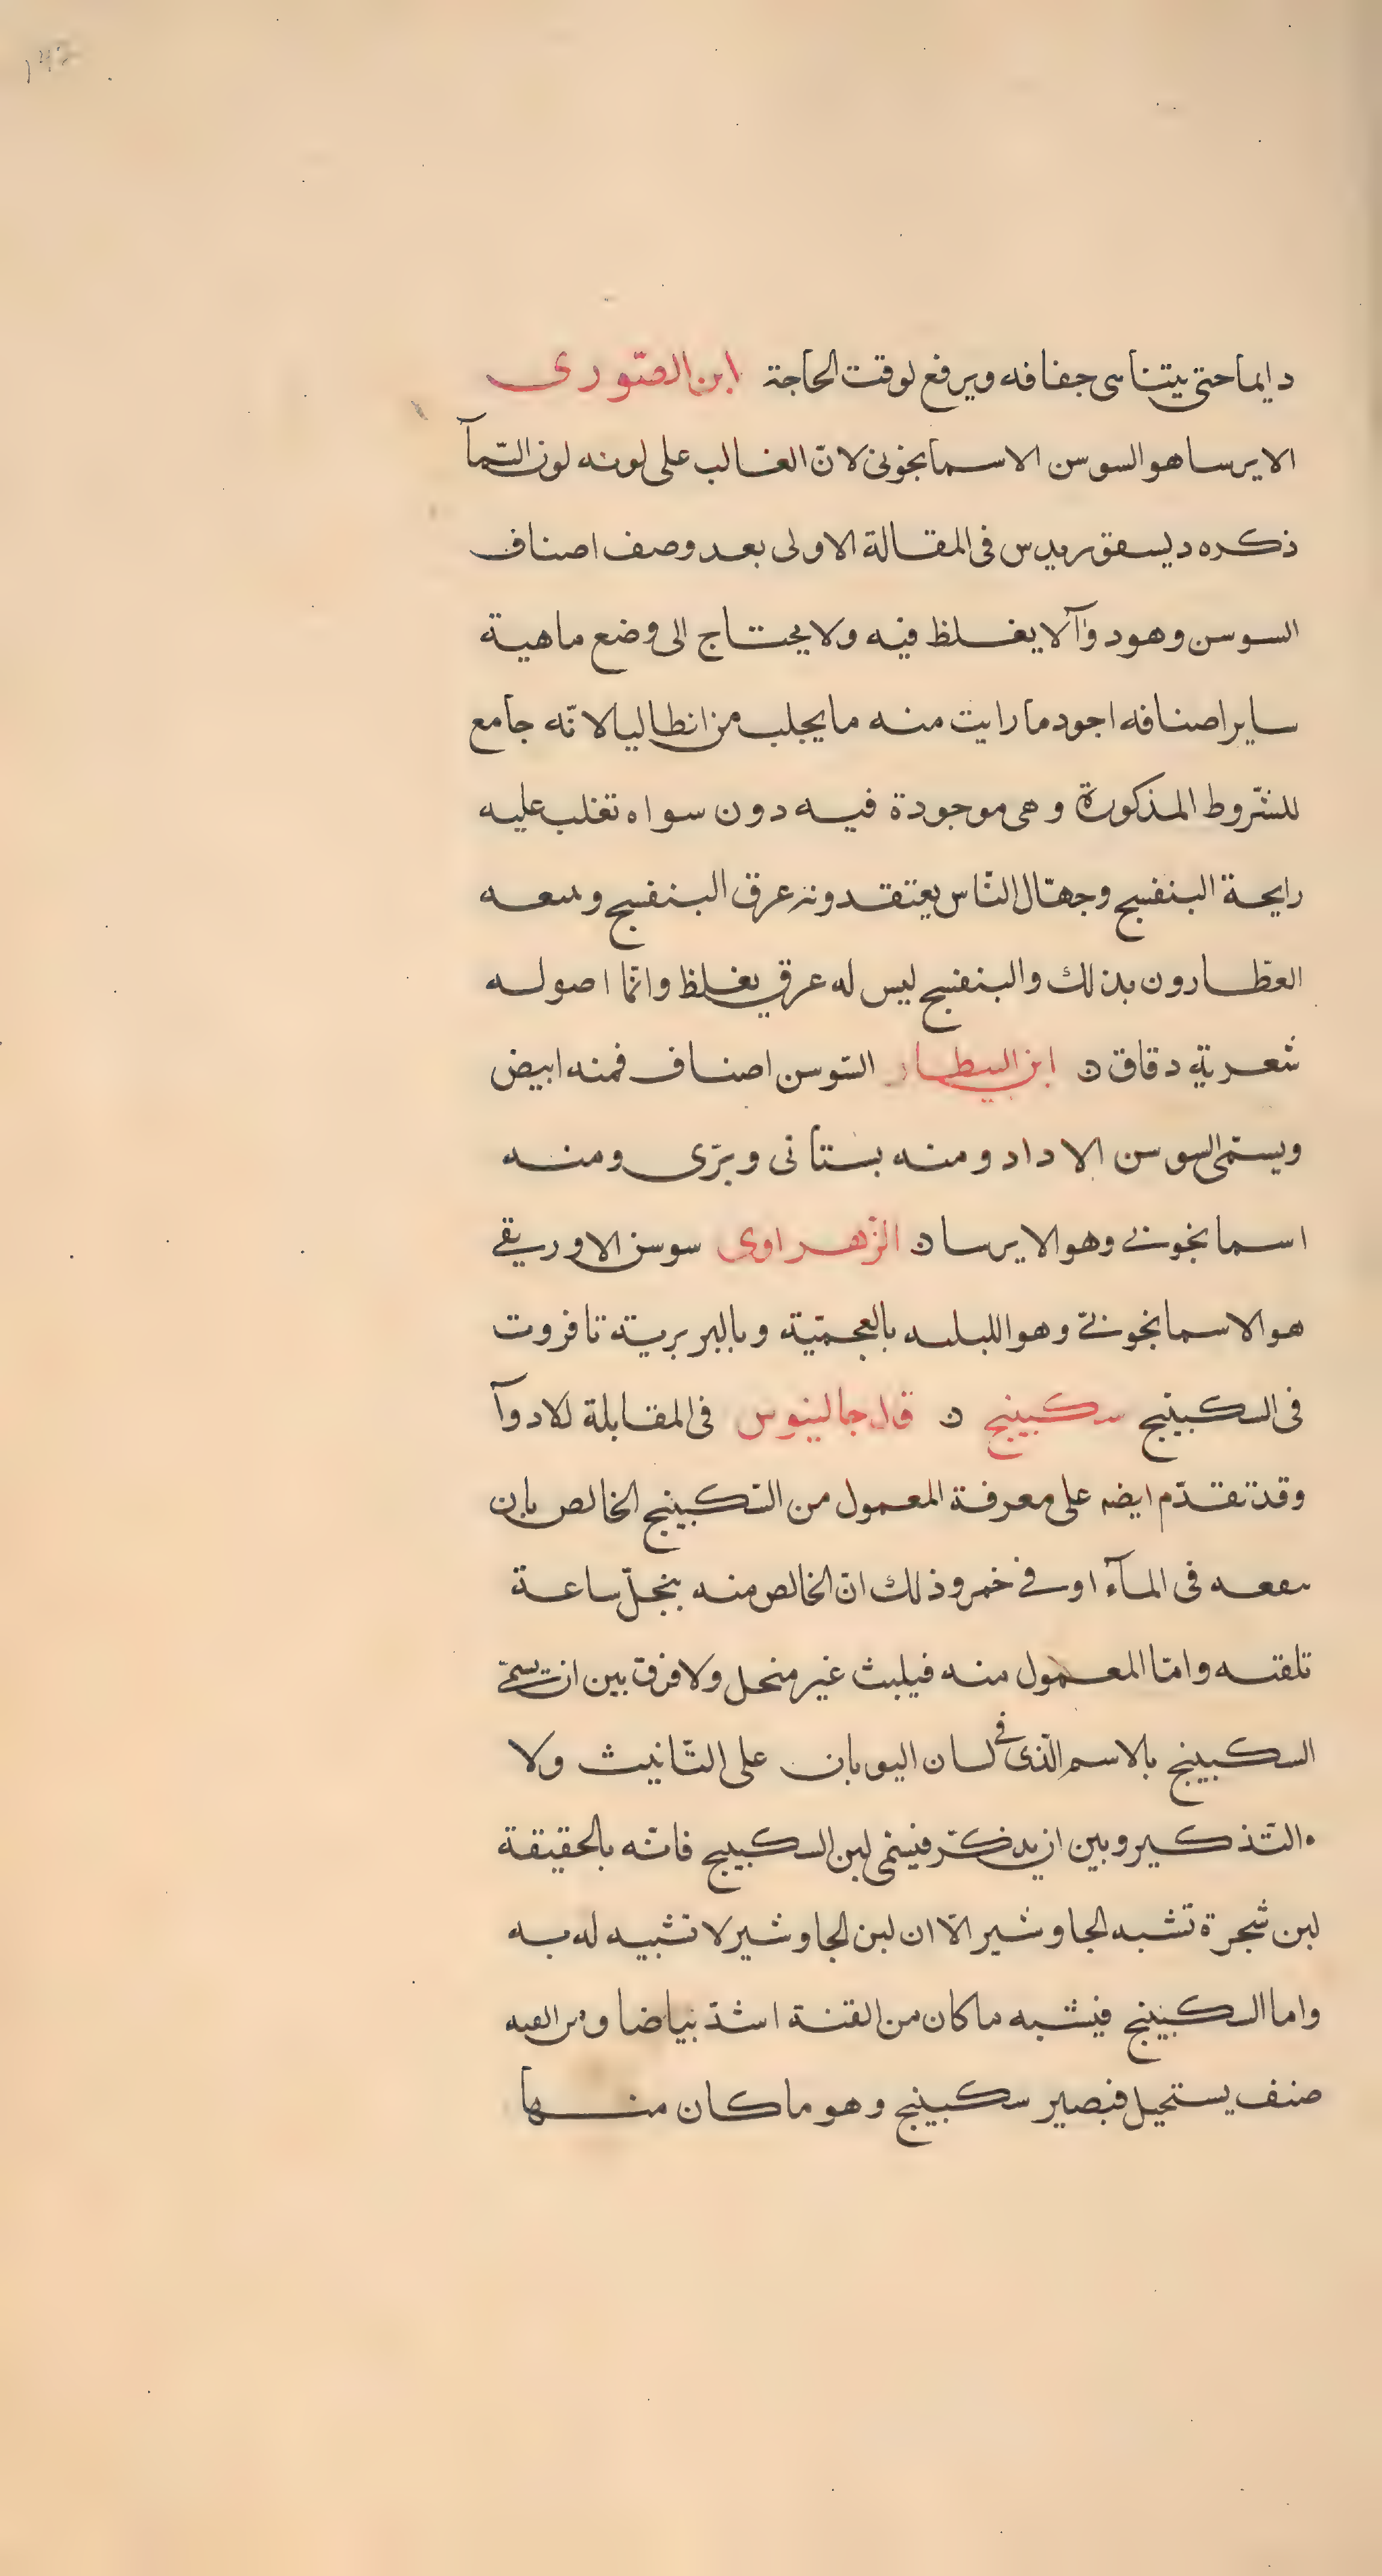 دايما حتى يتناهى جفافه ويرفع لوقت الحاجة ابن الصّورى
الايرسا هو السوسن الاسمانجونى لانّ الغالب على لونه لون السّمآ
ذكره ديسقوريدس فى المقالة الاولى بعد وصف اصناف
السوسن وهو دوآ لا يغلظ فيه ولا يحتاج الى وضع ماهية
ساير اصنافه اجود ما رايت منه ما يجلب من انطاليا لانّه جامع
للشّروط المذكورة وهى موجودة فيه دون سواه تغلب عليه
رايحة البنفسج وجهّال النّاس يعتقدونه عرق البنفسج وىىىعه
العطّارون بذلك والبنفسج ليس له عرق يغلظ وانّما اصوله
شعرية دقاق ن ابن البيطار السّوسن اصناف فمنه ابيض
ويسمّى السوسن الاداد ومنه بستانى وبرّى ومنه
اسمانجونى وهو الايرسا ن الزّهراوى سوسن الاوريقى
هو الاسمانجونىّ وهو بالعجميّة وبالبربرية تافروت
فى السكبينج سكبينج ن قال جالينوس فى المقابلة للادوآ
وقد تقدّم ايضه على معرفة المعمول من السّكبينج الخالص بان
ىىقعه فى المآء او فى خمر وذلك ان الخالص منه ينحلّ ساعة
تلقته وامّا المعمول منه فيلبث غير منحل ولا فرق بين ان تسمّى
السكبينج بالاسم الّذى فى لسان اليونان على التّانيث ولا
التّذكير وبين ان يذكّر فيسمّى لبن السكبينج فانّه بالحقيقة
لبن شجرة تشبه الجاوشير الّا ان لبن الجاوشير لا تشبيه له به
واما السكبينج فيشبه ما كان من القنة اشدّ بياضا ومن القنه
صنف يستحيل فيصير سكبينج وهو ما كان منها